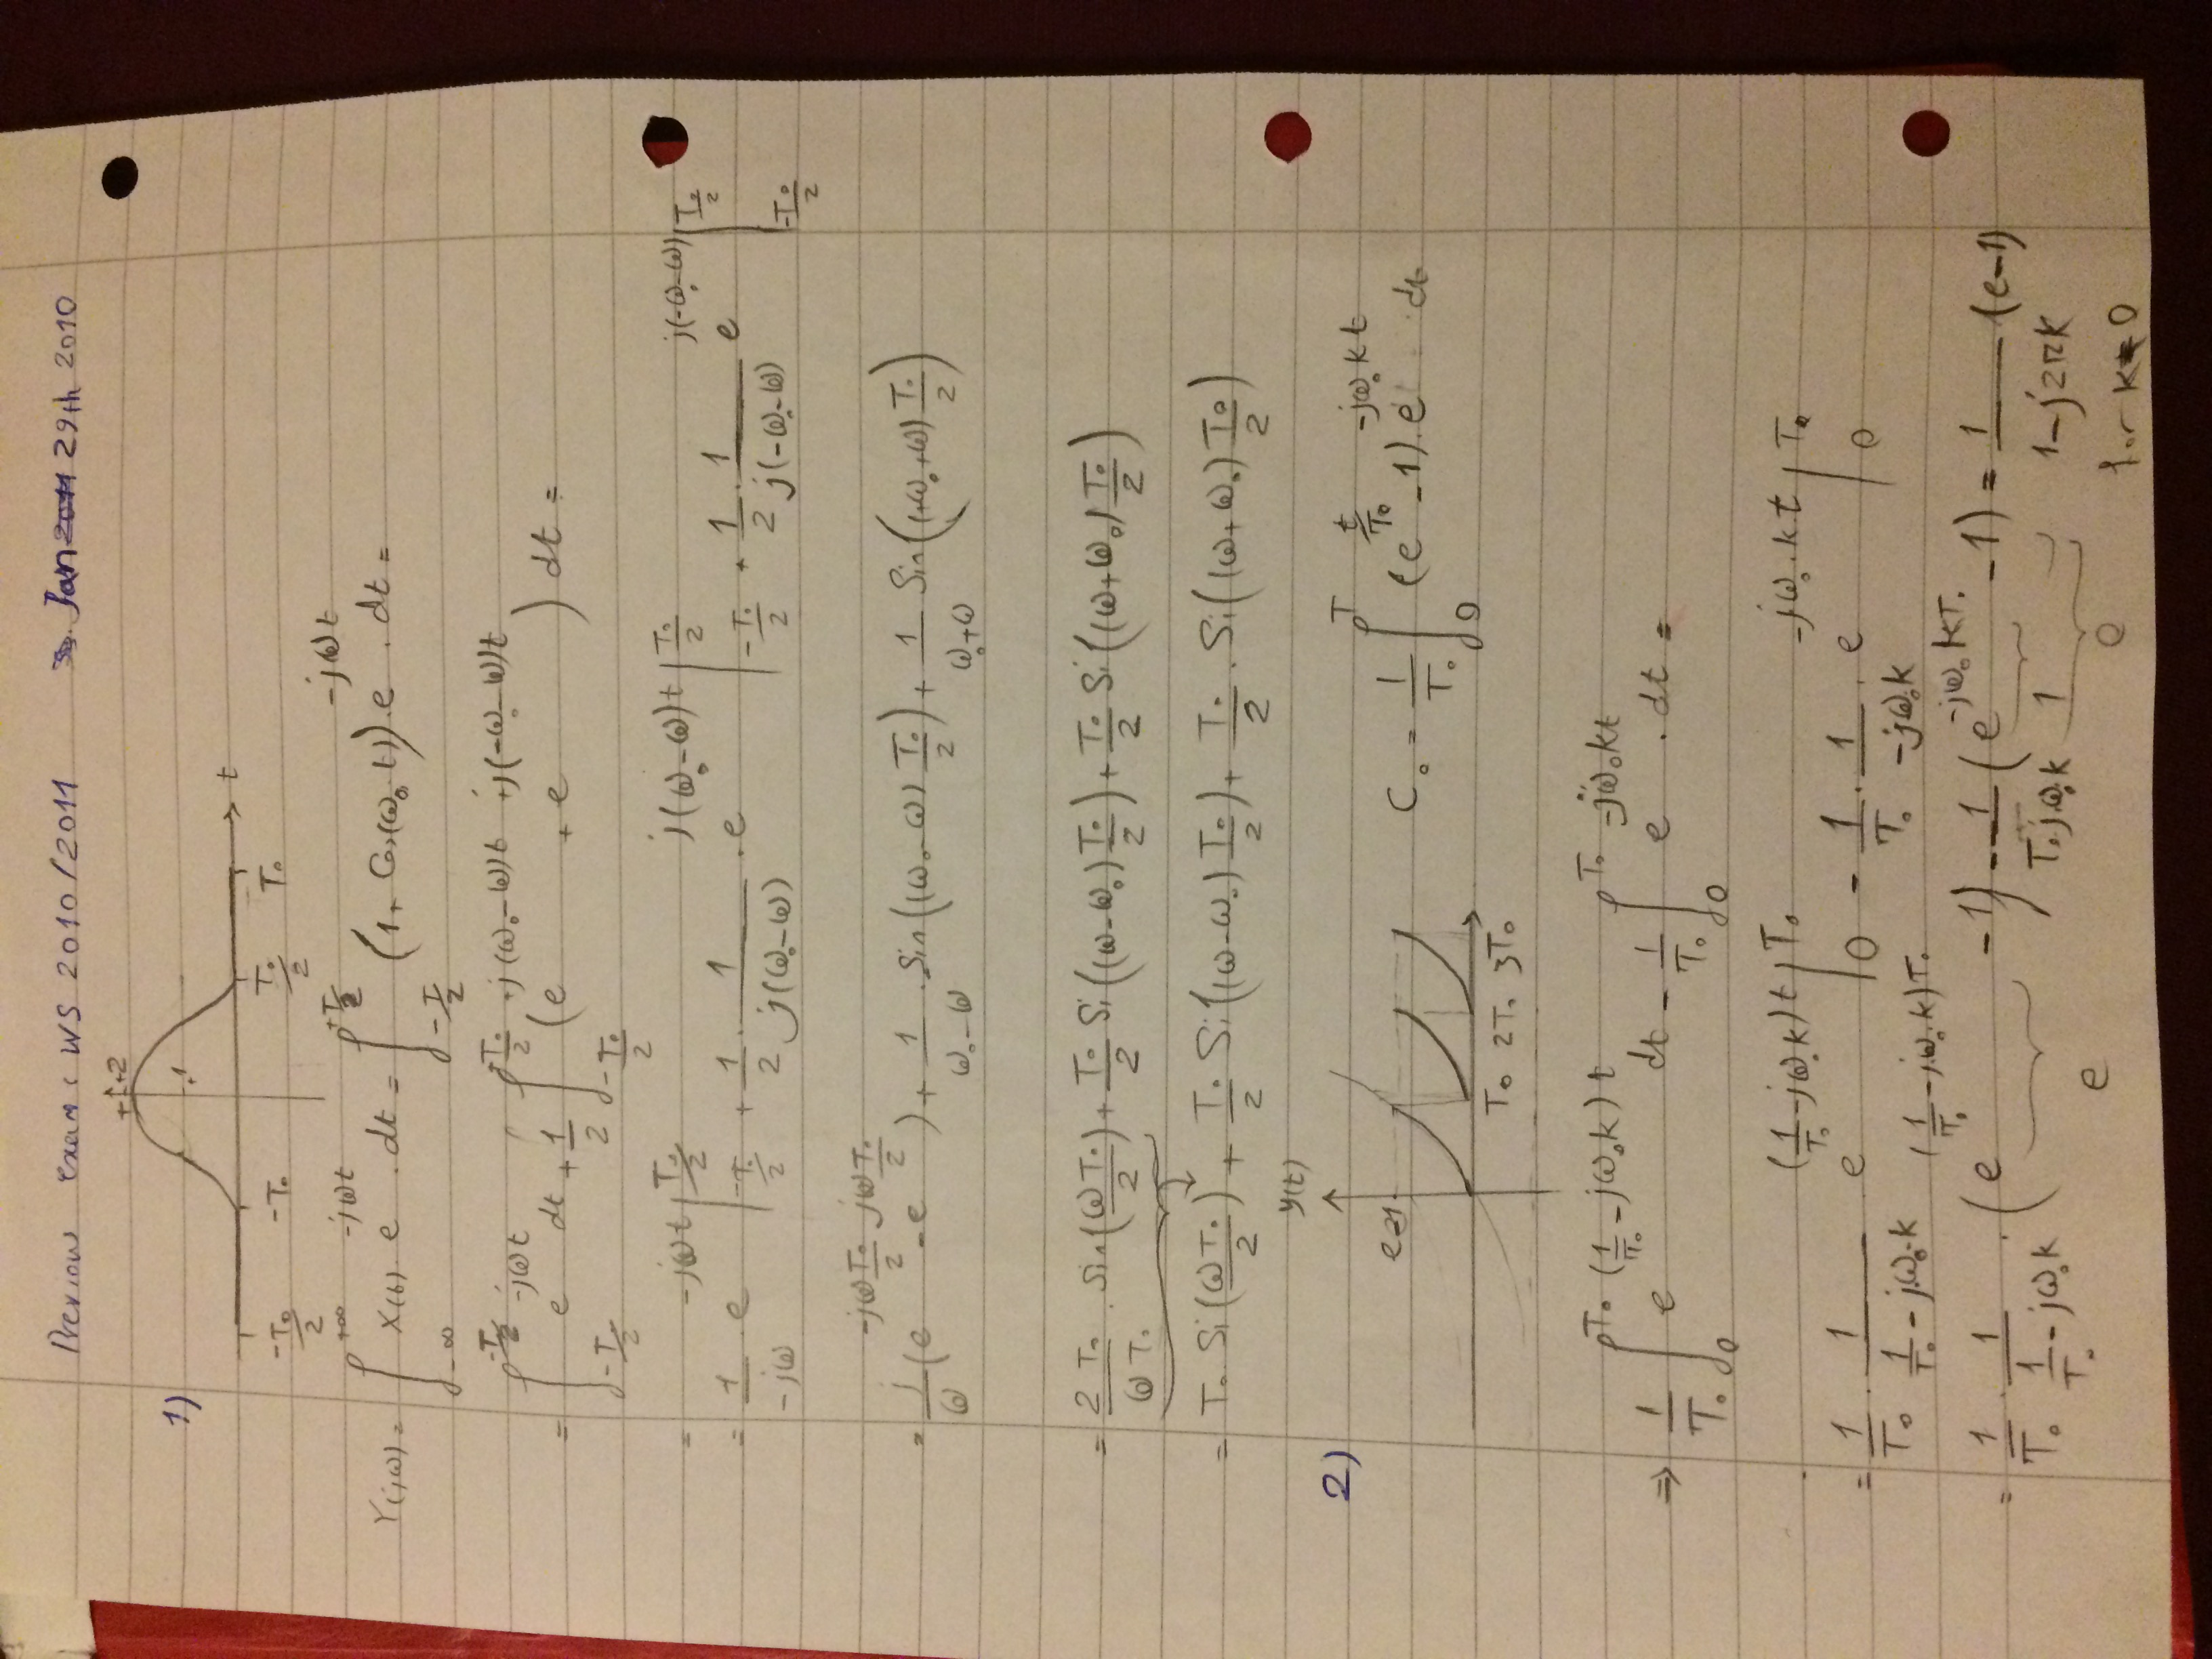 Previous exam: WS 2010/2011 Jan 2011 29th 2010
1)
+2
1
t
-T₀/2 -T₀ T₀/2 T₀
Y(jω) = ∫_{-∞}^{+∞} x(t) · e^{-jωt} · dt = ∫_{-T/2}^{+T/2} (1 + Cos(ω₀ t)) · e^{-jωt} · dt =
= ∫_{-T/2}^{-T/2} e^{-jωt} dt + 1/2 ∫_{-T₀/2}^{+T₀/2} (e^{+j(ω₀-ω)t} + e^{+j(-ω₀-ω)t}) dt =
=
= 1/(-jω) · e^{-jωt} |_{-T₀/2}^{T₀/2} + 1/2 · 1/(j(ω₀-ω)) · e^{j(ω₀-ω)t} |_{-T₀/2}^{T₀/2} + 1/2 · 1/(j(-ω₀-ω)) e^{j(-ω₀-ω)} |_{-T₀/2}^{T₀/2}
= j/ω (e^{-jωT₀/2} - e^{jωT₀/2}) + 1/(ω₀-ω) · Sin((ω₀-ω) T₀/2) + 1/(ω₀+ω) Sin((+ω₀+ω) T₀/2)
= 2T₀/(ωT₀) · Sin(ωT₀/2) + T₀/2 Si((ω-ω₀) T₀/2) + T₀/2 Si((ω+ω₀) T₀/2)
= T₀ Si(ωT₀/2) + T₀/2 Si((ω-ω₀) T₀/2) + T₀/2 · Si((ω+ω₀) T₀/2)
2)
y(t)
e-1
T₀ 2T₀ 3T₀
C₀ = 1/T₀ ∫_0^T (e^{t/T₀} - 1) · e^{-jω₀kt} · dt
⇒ 1/T₀ ∫_0^{T₀} e^{(1/T₀ - jω₀k)t} dt - 1/T₀ ∫_0^{T₀} e^{-jω₀kt} · dt =
= 1/T₀ · 1/(1/T₀ - jω₀·k) e^{(1/T₀ - jω₀k)t} |_0^{T₀} - 1/T₀ · 1/(-jω₀k) · e^{-jω₀·kt} |_0^{T₀}
= 1/T₀ · 1/(1/T₀ - jω₀k) · (e^{(1/T₀ - jω₀·k)T₀} - 1) - 1/(T₀jω₀k) (e^{-jω₀kT₀} - 1) = 1/(1-j2πk) (e-1)
e 1 0
for k 0